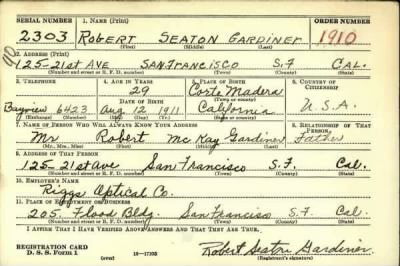 SERIAL NUMBER 1. NAME (Print) ORDER NUMBER
2303 ROBERT SEATON GARDINER 1910
(First) (Middle) (Last)
2. ADDRESS (Print)
125-21st AVE SAN.FRANCISCO S.F CAL.
(Number and street or R. F. D. number) (Town) (County) (State)
3. TELEPHONE 4. AGE IN YEARS 5. PLACE OF BIRTH 6. COUNTRY OF CITIZENSHIP
29 Corte Madera
DATE OF BIRTH (Town or county)
Bayview 6423 Aug 12 1911 California U.S.A.
(Exchange) (Number) (Mo.) (Day) (Yr.) (State or country)
7. NAME OF PERSON WHO WILL ALWAYS KNOW YOUR ADDRESS 8. RELATIONSHIP OF THAT PERSON
Mr Robert McKay Gardiner Father
(Mr., Mrs., Miss) (First) (Middle) (Last)
9. ADDRESS OF THAT PERSON
125-21st Ave San Francisco S.F. Cal.
(Number and street or R. F. D. number) (Town) (County) (State)
10. EMPLOYER'S NAME
Riggs Optical Co.
11. PLACE OF EMPLOYMENT OR BUSINESS
205 Flood Bldg. San Francisco S.F. Cal.
(Number and street or R. F. D. number) (Town) (County) (State)
I AFFIRM THAT I HAVE VERIFIED ABOVE ANSWERS AND THAT THEY ARE TRUE.
REGISTRATION CARD
D. S. S. FORM 1 (over) 16—17105 Robert Seaton Gardiner
(Registrant's signature)